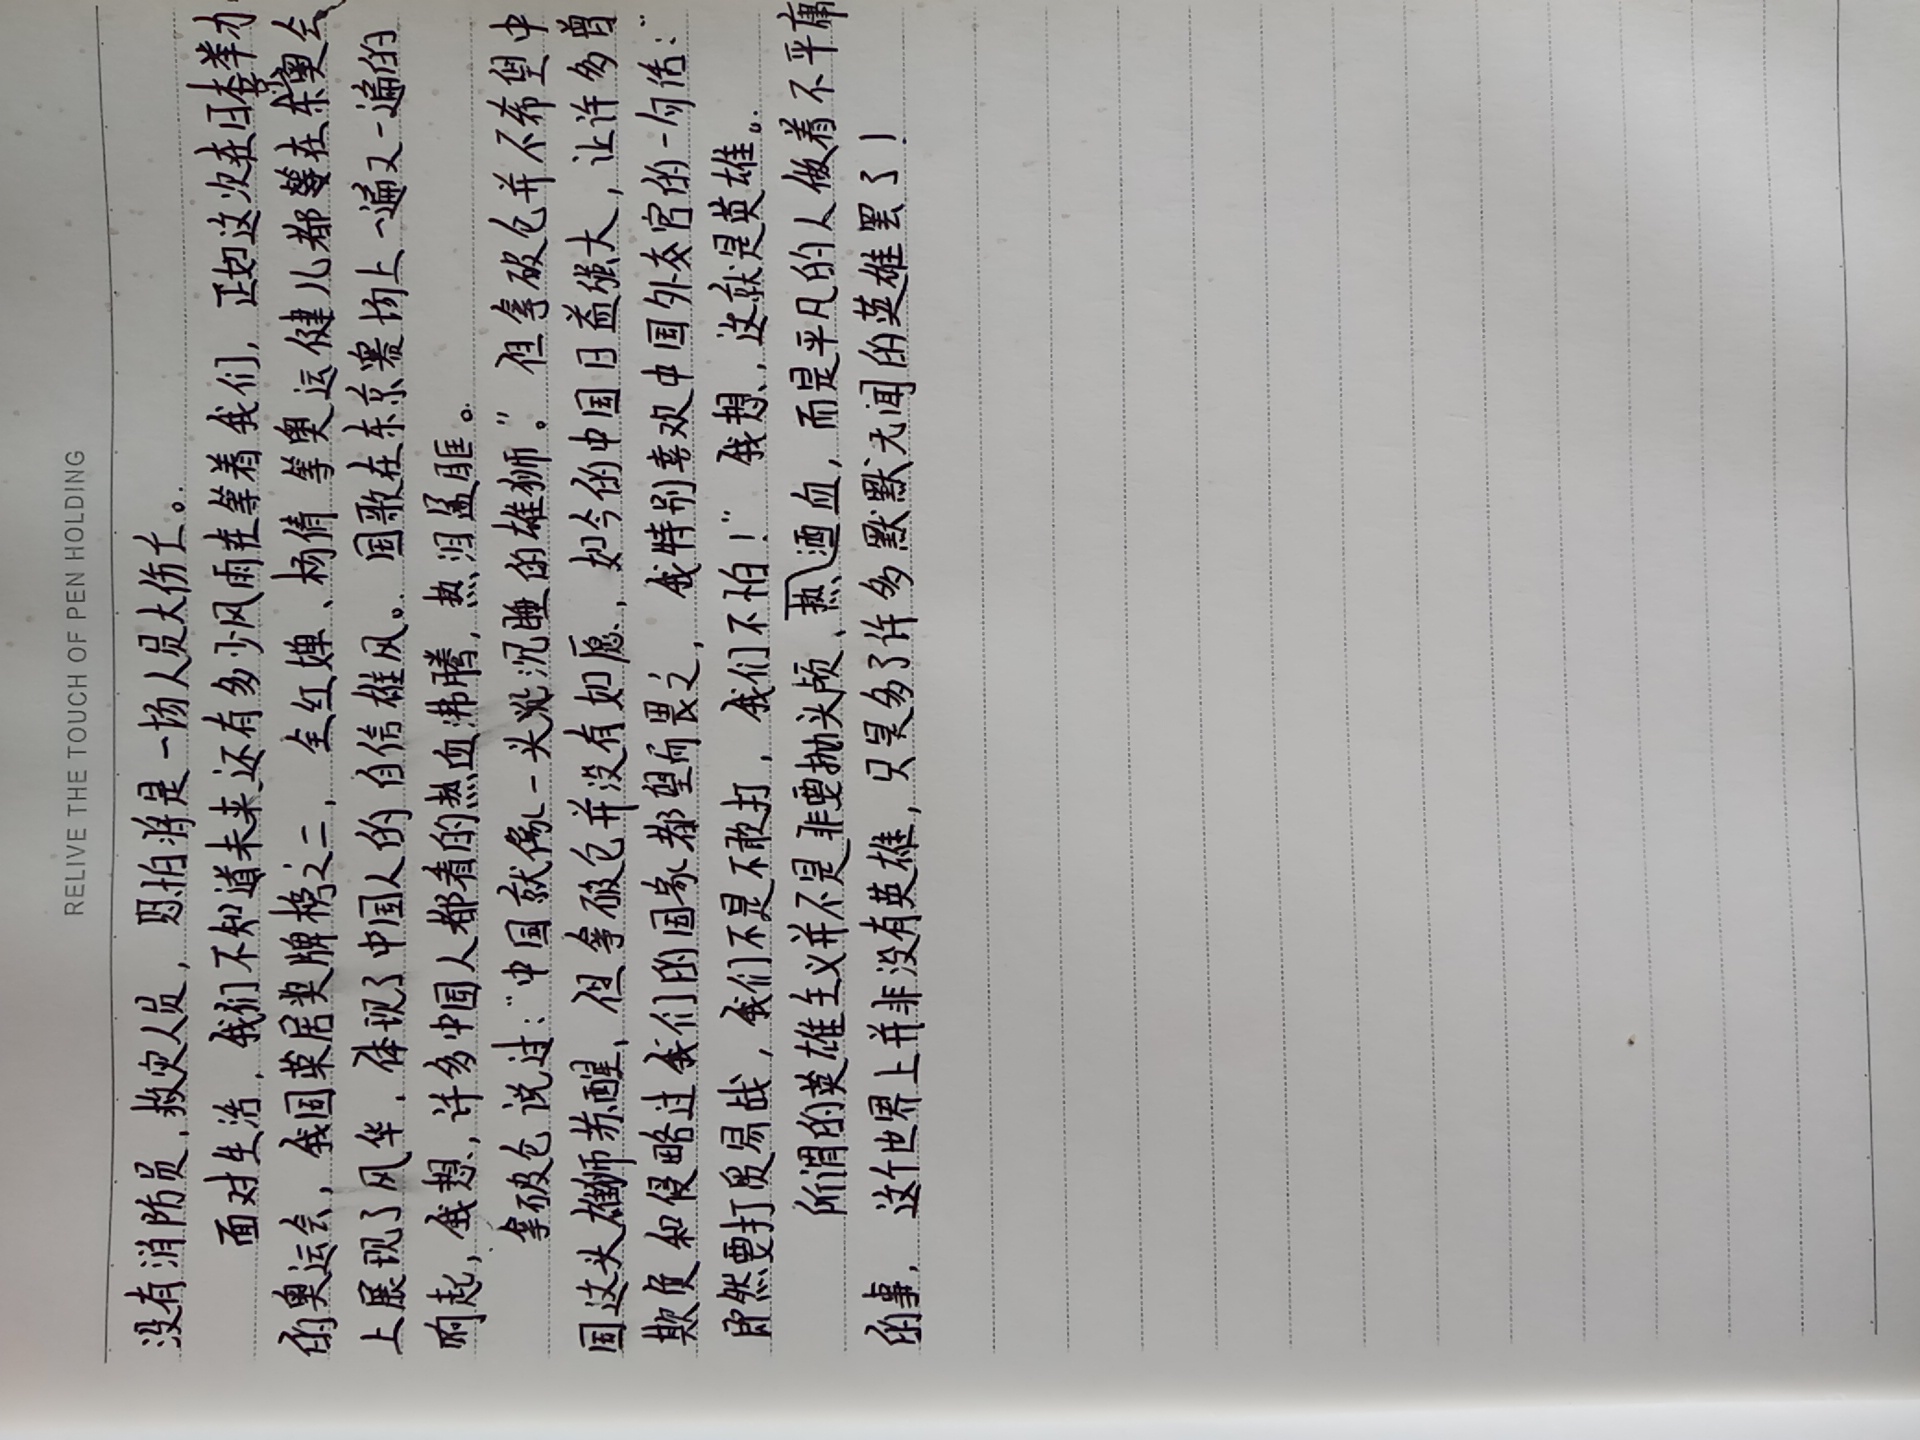 RELIVE THE TOUCH OF PEN HOLDING
没有消防员,救灾人员,恐怕将是一场人员大伤亡。
面对生活,我们不知道未来还有多少风雨在等着我们,正如这次在日本举办
的奥运会,我国荣居奖牌榜之二,全红婵、杨倩等奥运健儿都在东奥会
上展现了风华,体现了中国人的自信雄风。国歌在东京赛场上一遍又一遍的
响起,我想,许多中国人都看的热血沸腾,热泪盈眶。
拿破仑说过:“中国就像一头沉睡的雄狮。”但拿破仑并不希望中
国这头雄狮苏醒,但拿破仑并没有如愿,如今的中国日益强大,让许多曾
欺负和侵略过我们的国家都望而畏之,我特别喜欢中国外交官的一句话:“
既然要打贸易战,我们不是不敢打,我们不怕!”我想,这就是英雄。
所谓的英雄主义并不是非要抛头颅、热洒血,而是平凡的人做着不平庸
的事,这个世界上并非没有英雄,只是多了许多默默无闻的英雄罢了!